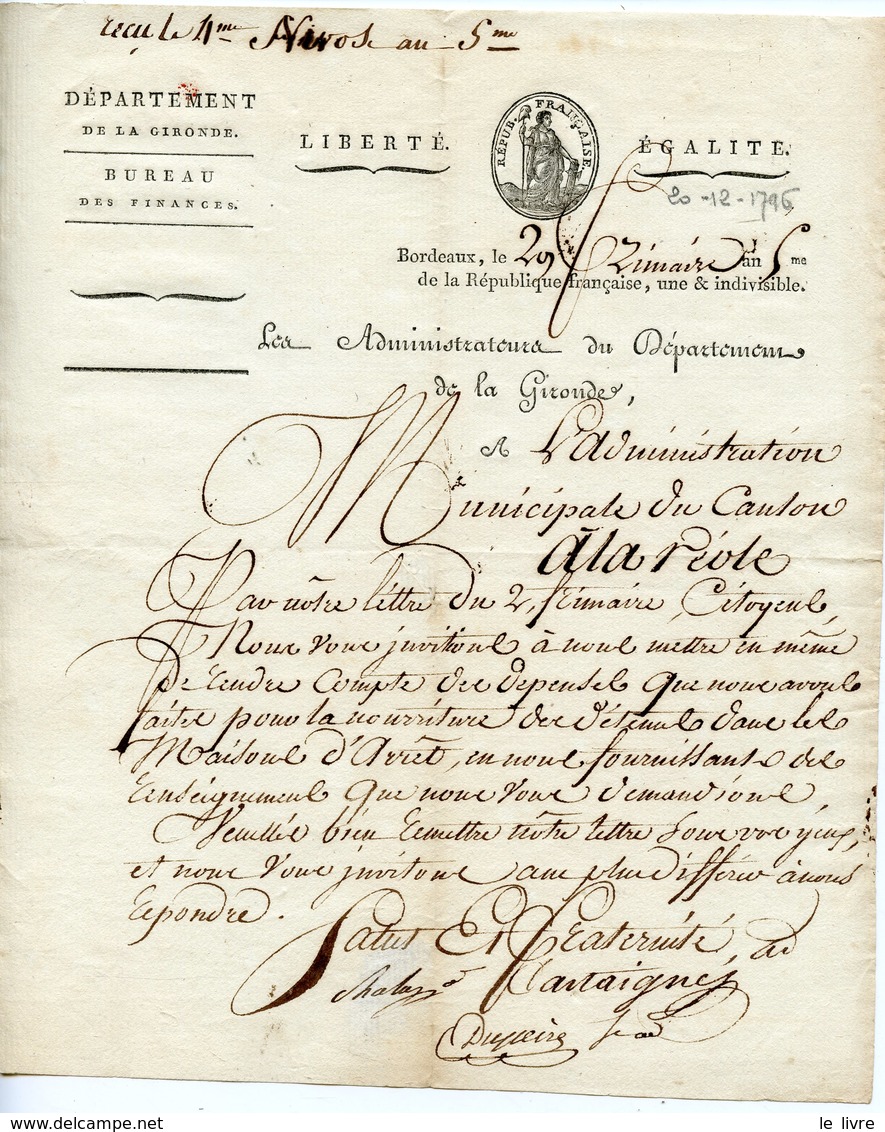 reçu le 4me Nivose an 5me
DÉPARTEMENT
DE LA GIRONDE.
BUREAU
DES FINANCES.
LIBERTÉ.
RÉPUB. FRANÇAISE.
ÉGALITÉ.
20-12-1796
Bordeaux, le 29 frimaire an 5me
de la République française, une & indivisible.
Les Administrateurs du Département
de la Gironde,
A L'administration
Municipale du Canton
de la réole
Par nôtre lettre du 2 frimaire, Citoyens,
Nous vous invitions à nous mettre en même
de rendre compte des depenses que nous avons
faites pour la nourriture des détenus dans les
Maisons d'Arrêt, en nous fournissant des
renseignemens que nous vous demandions,
Veuillés bien remettre nôtre lettre sous vos yeux,
et nous vous invitons a ne plus différer à nous
repondre.
Salut Et Fraternité,
Dupleix
le livre
delcampe.net